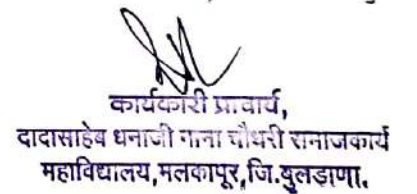 कार्यकारी प्राचार्य,
दादासाहेब धनाजी नाना चौधरी समाजकार्य
महाविद्यालय, मलकापूर, जि.बुलडाणा.